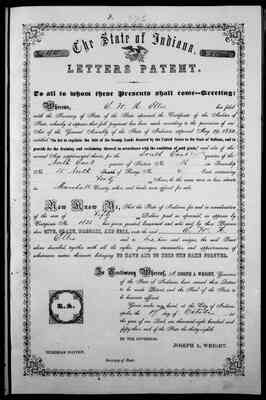 The State of Indiana.
LETTERS PATENT.
To all to whom these Presents shall come—Greeting:
Whereas, has filed
with the Secretary of State of the State aforesaid the Certificate of the Auditor of
State, whereby it appears that full payment has been made according to the provisions of an
Act of the General Assembly of the State of Indiana, approved May 29, 1852,
entitled "An Act to regulate the Sale of the Swamp Lands donated by the United States to the State of Indiana, and to
provide for the draining and reclaiming thereof in accordance with the condition of said grant," and acts of the
second Step supplemental thereto, for the South East quarter of the
North East quarter of Section No. in Township
No. North of Range No. East containing
Forty Acres, be the same more or less, situate in
Marshall County, when said lands were offered for sale.
Now Know Ye, That the State of Indiana, for and in consideration
of the sum of Fifty Dollars paid as aforesaid, as appears by
Certificate No. has given, granted, bargained and sold, and by these Presents
does GIVE, GRANT, BARGAIN, AND SELL, unto the said
Ellis and to heirs and assigns, the said Tract
above described, together with all the rights, privileges, immunities, and appurtenances of
whatsoever nature thereunto belonging TO HAVE AND TO HOLD THE SAME FOREVER.
In Testimony Whereof, I, JOSEPH A. WRIGHT, Governor
of the State of Indiana, have caused these Letters
to be made Patent, and the Seal of the State to
be hereunto affixed.
Given under my hand, at the City of Indianapolis,
the 19 day of October in
the year of our Lord, one thousand eight hundred and
fifty-three and of the State the thirty-eighth
BY THE GOVERNOR: JOSEPH A. WRIGHT.
NEHEMIAH HAYDEN,
Secretary of State.